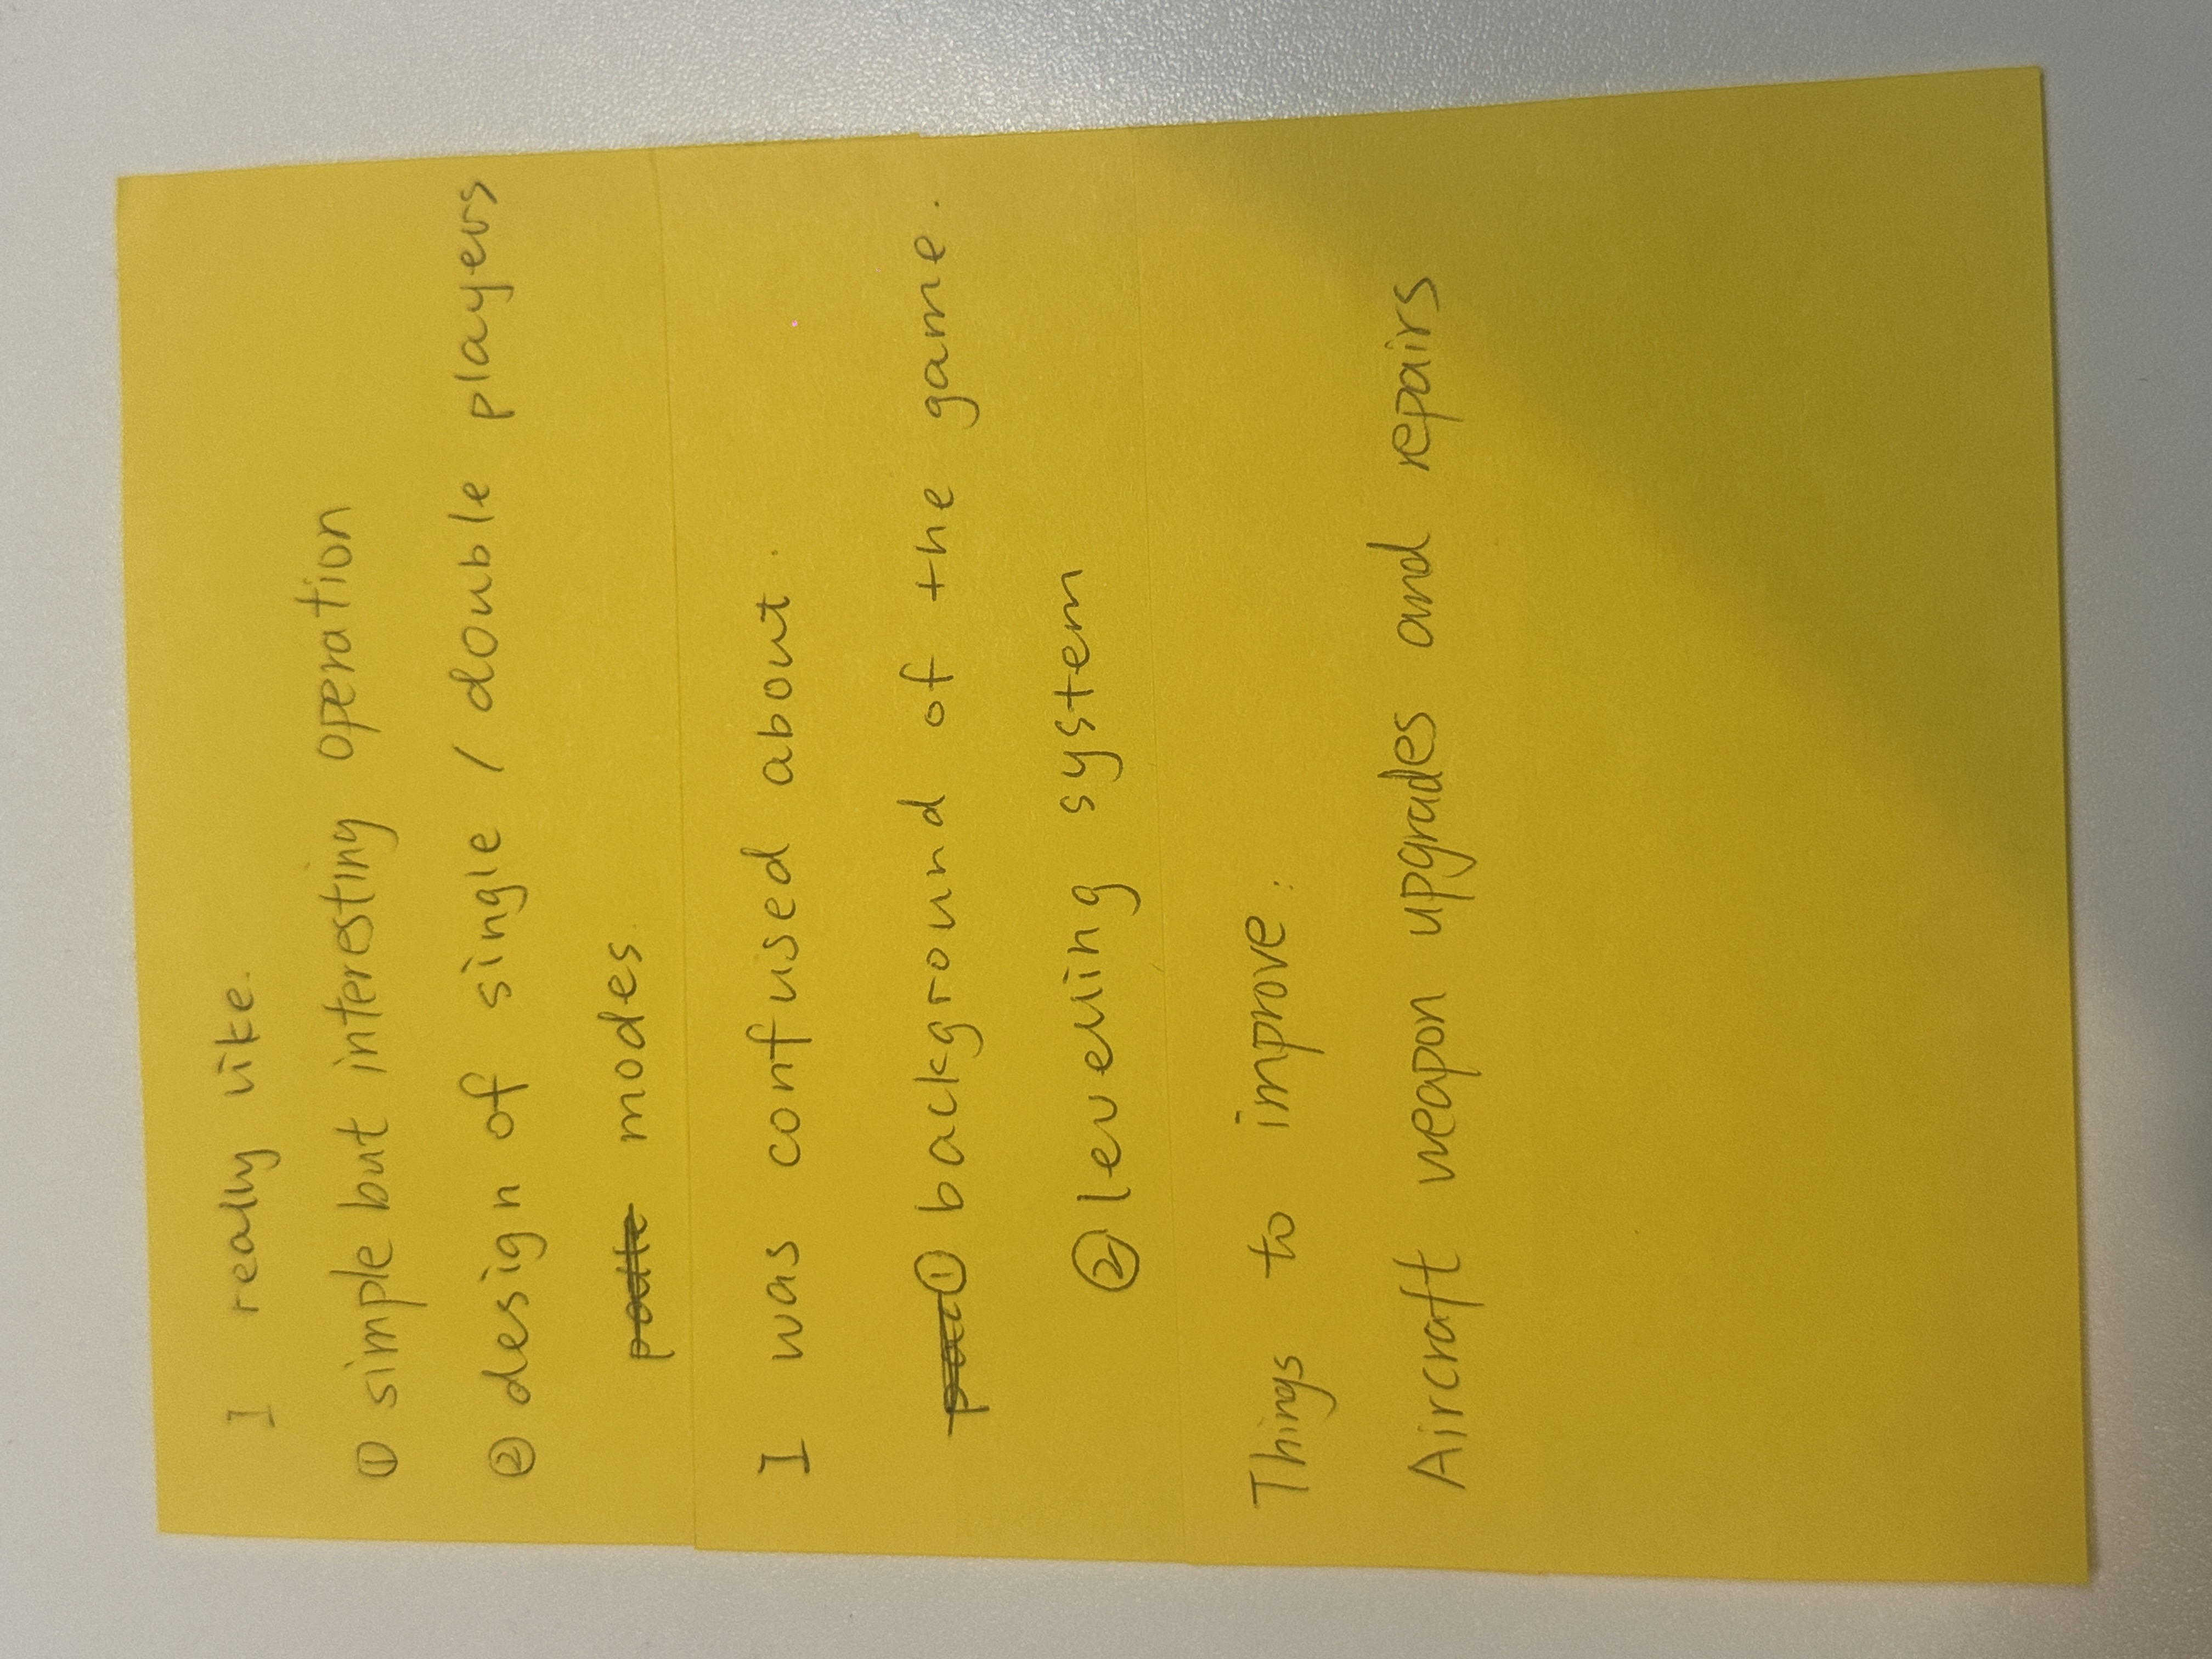 I really like.
① simple but interesting operation
② design of single / double players
modes.
I was confused about.
① background of the game.
② levelling system
Things to improve:
Aircraft weapon upgrades and repairs